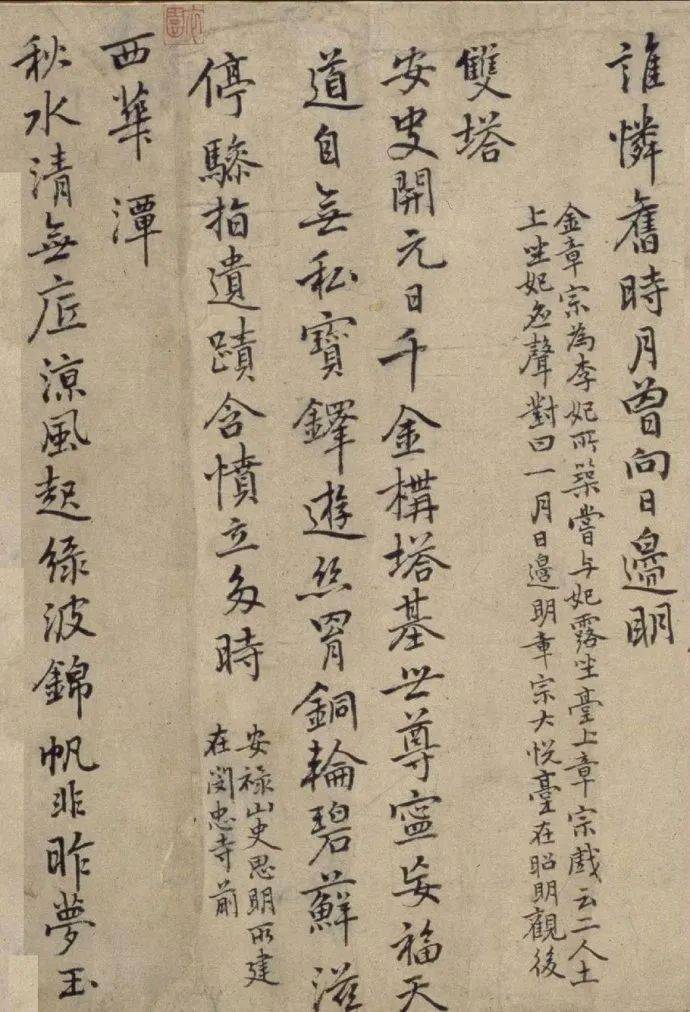 誰憐舊時月曾向日邊明
金章宗為李妃所築嘗与妃露坐臺上章宗戲云二人土
上坐妃應聲對曰一月日邊明章宗大悅臺在昭明觀後
雙塔
安史開元日千金構塔基世尊寧妄福天
道自無私寶鐸遊絲罥銅輪碧蘚滋
停驂指遺蹟含憤立多時
安祿山史思明所建
在閔忠寺前
西華潭
秋水清無底涼風起綠波錦帆非昨夢玉